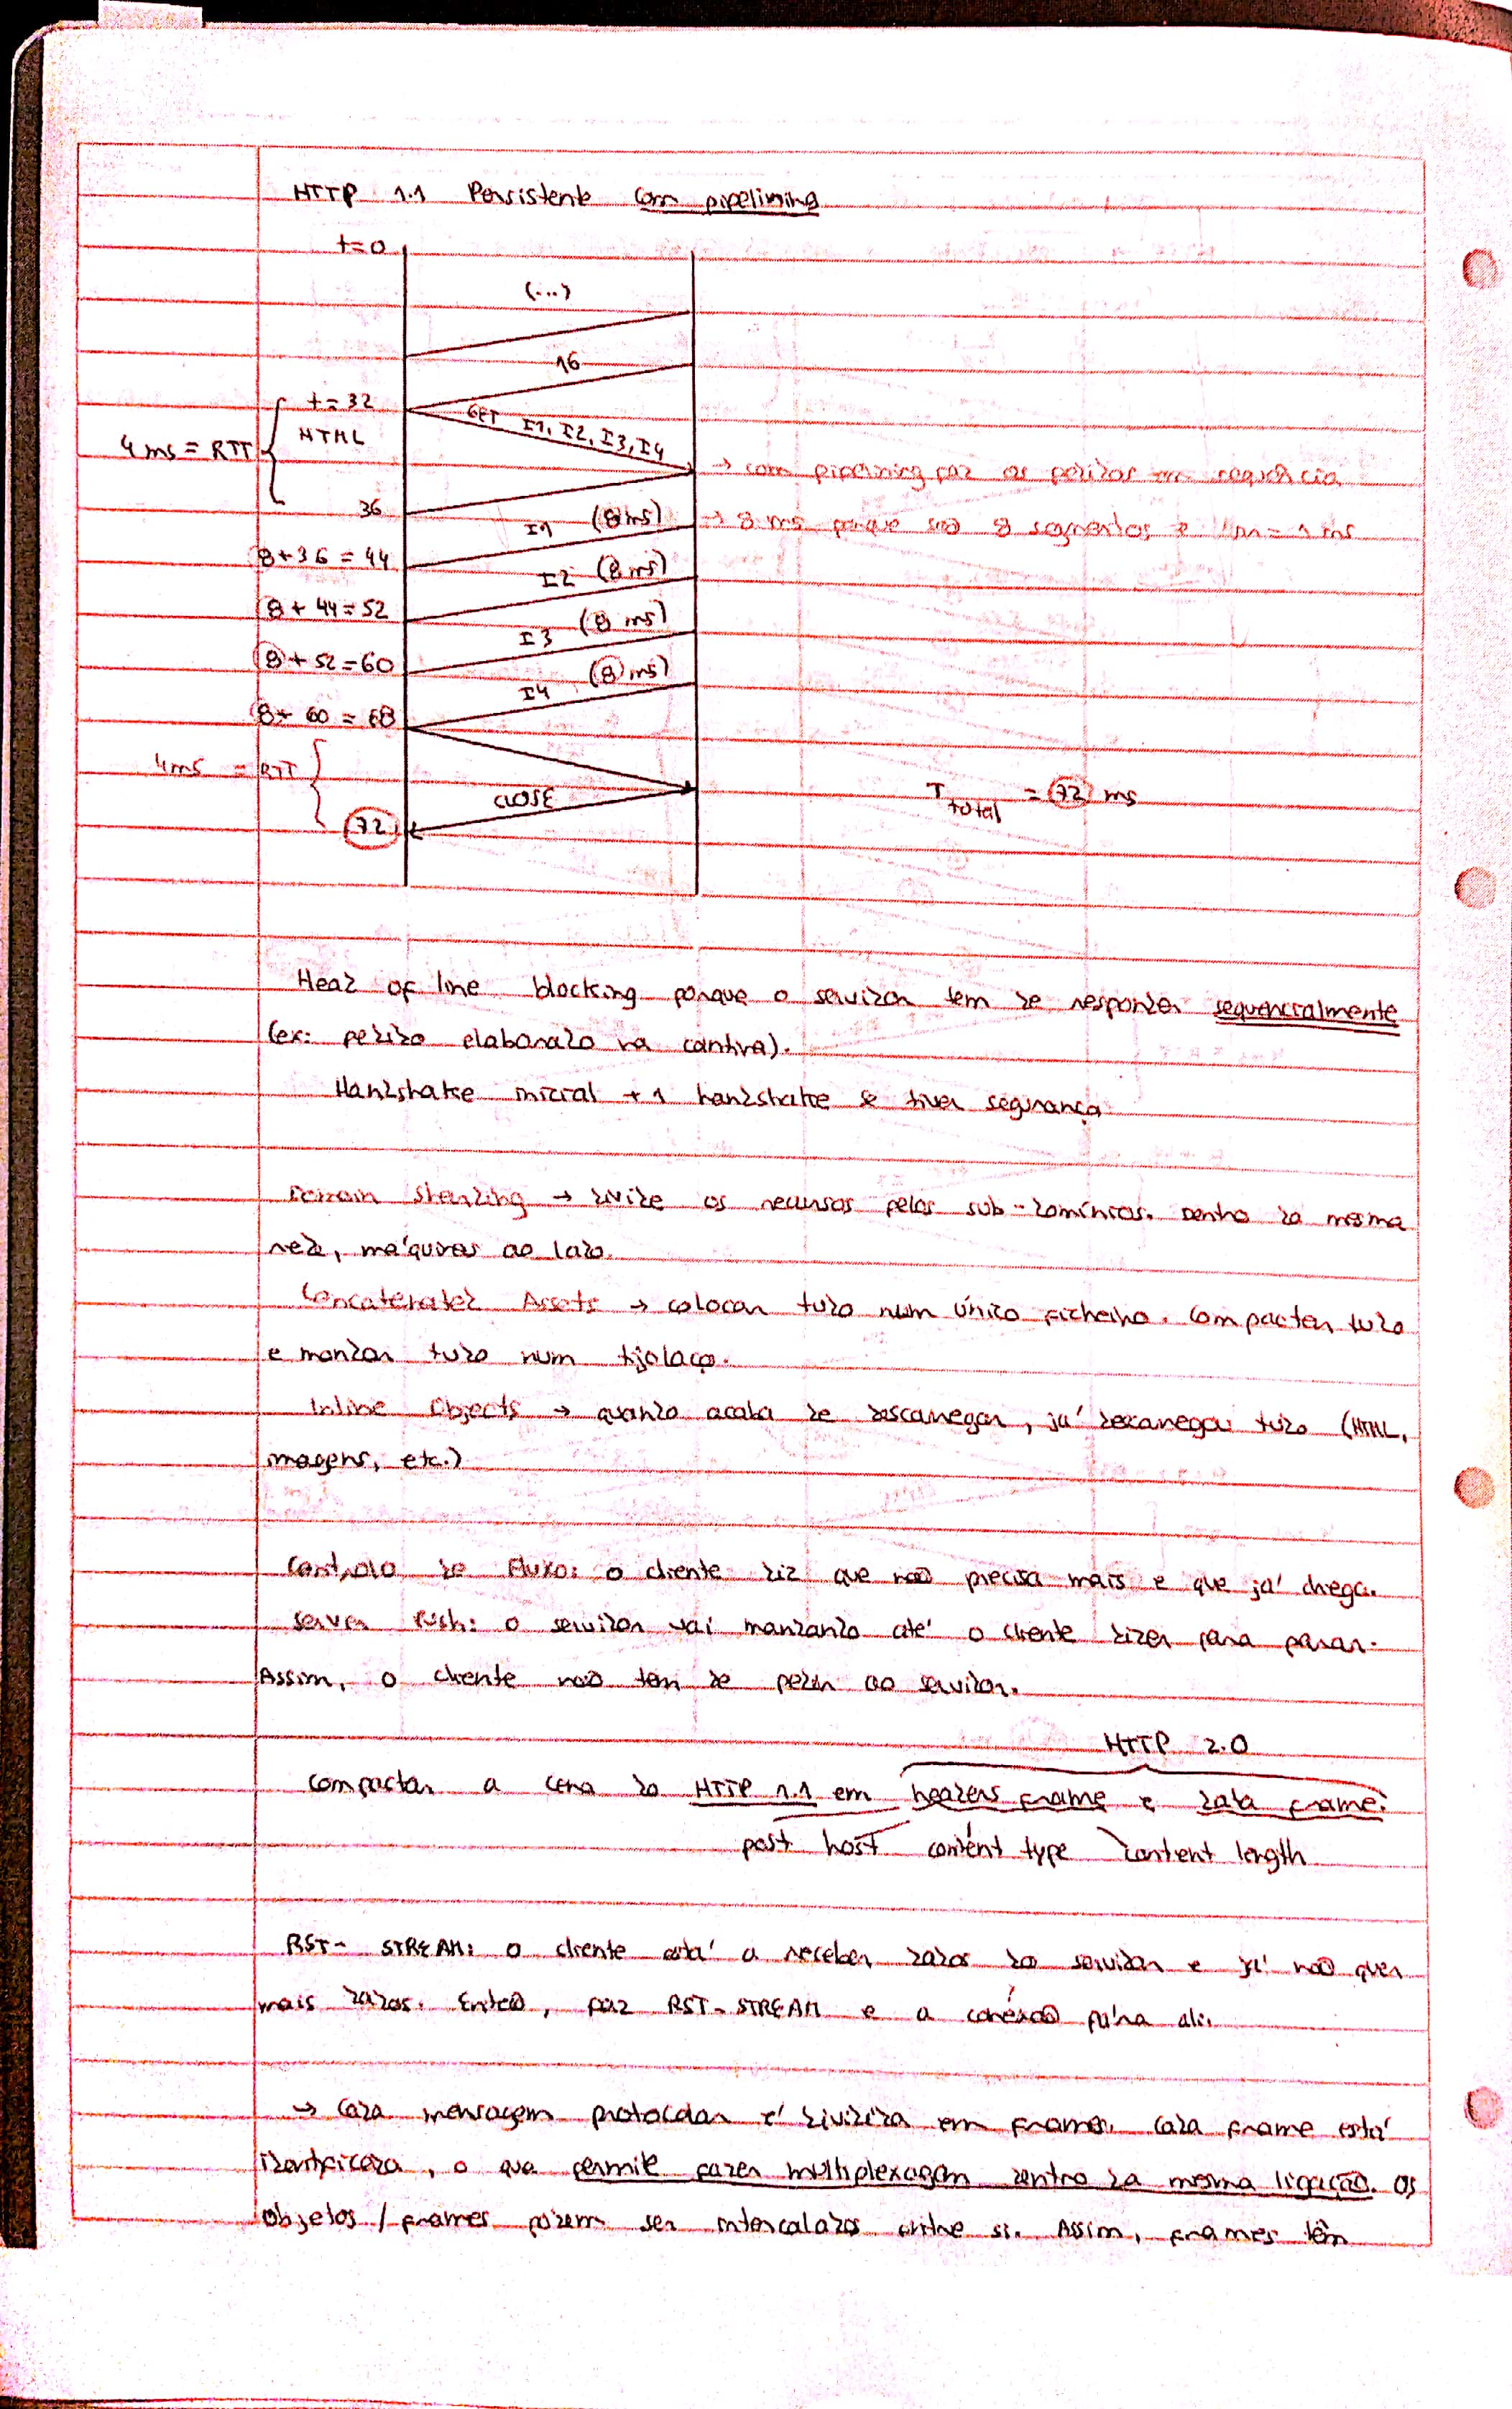 HTTP 1.1 Persistente com pipelining
t=0
(...)
16
t=32
HTML
4 ms = RTT
GET I1, I2, I3, I4
→ com pipelining faz os pedidos em sequência
36
I1 (8ms)
→ 8 ms porque são 8 segmentos e = 1 ms
8+36 = 44
I2 (8ms)
8+ 44=52
I3 (8 ms)
8+ 52=60
I4 (8 ms)
8+ 60 = 68
4ms = RTT
CLOSE
72
T total = 72 ms
Head of line blocking porque o servidor tem de responder sequencialmente
(ex: pedido elaborado na cantina).
Handshake inicial + 1 handshake se tiver segurança
Domain Sharding → divide os recursos pelos sub-domínios. Dentro da mesma
rede, máquinas ao lado.
Concatenated Assets → colocar tudo num único ficheiro. Compactar tudo
e mandar tudo num tijolaço.
Inline Objects → quando acaba de descarregar, já descarregou tudo (HTML,
imagens, etc.)
Controlo de Fluxo: o cliente diz que não precisa mais e que já chega.
Server Push: o servidor vai mandando até o cliente dizer para parar.
Assim, o cliente não tem de pedir ao servidor.
HTTP 2.0
compactar a cena do HTTP 1.1 em headers frame e data frame:
post host content type content length
RST- STREAM: o cliente está a receber dados do servidor e já não quer
mais dados. Então, faz RST-STREAM e a conexão pára ali.
→ Cada mensagem protocolar é dividida em frames. Cada frame está
identificada, o que permite fazer multiplexagem dentro da mesma ligação. Os
objetos / frames podem ser intercalados entre si. Assim, frames têm